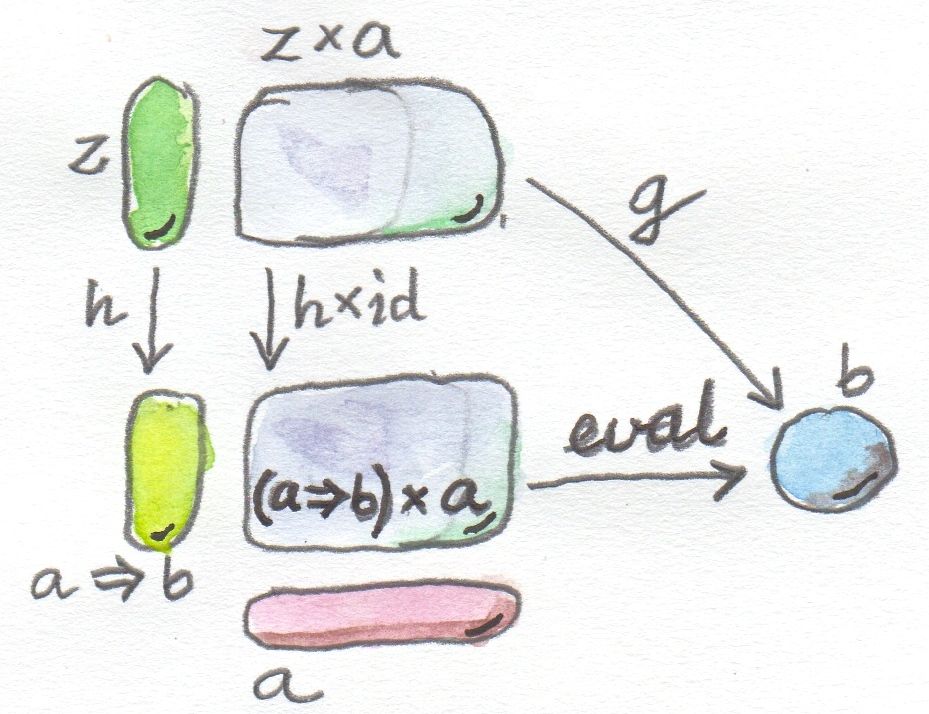 z×a
z
g
h
h×id
b
eval
(a⇒b)×a
a⇒b
a